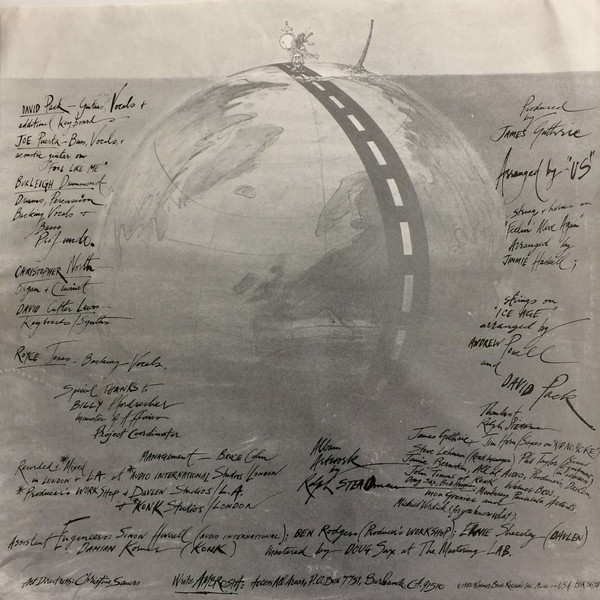 DAVID Pack – Guitars, Vocals +
additional Keyboards
JOE Puerta – Bass, Vocals, +
acoustic guitar on
"FOOL LIKE ME"
BURLEIGH Drummond
Drums, Percussion
Backing Vocals +
Basso
Profundo.
CHRISTOPHER North
Organ + Clarinet
DAVID Cutler Lewis
Keyboards/Synths
ROYCE Jones – Backing Vocals.
Special THANKS to
BILLY
Minister of Affairs
Project Coordinator
Produced
by
JAMES Guthrie
Arranged by "US"
strings + horns on
"Feelin' Alive Again"
Arranged by
JIMMIE Haskell;
strings on
"ICE AGE"
arranged by
ANDREW Powell
and
DAVID Pack
Management – BRUCE Cohn
Recorded + Mixed
in LONDON + L.A. at *AUDIO INTERNATIONAL Studios London
*Producer's WORKSHOP + DAVLEN Studios/L.A.
+ *KONK Studios/LONDON
Album
Artwork
Ralph STEADman
Thanks
Ralph
James Guthrie, Jim Horn/Saxes on "NO NO NO MORE"
Steve
Jamie AUDIO, Producers, Davlen
John KONK, Warners Bros.
Doug Sax, Monterey Peninsula Artists
Michael Verdick (for a know what)
Assistant Engineers: Simon Hurrell (AUDIO INTERNATIONAL); BEN Rodgers (Producer's WORKSHOP); (DAVLEN)
DAMIAN Korner (KONK) Mastered by – DOUG Sax at The Mastering LAB.
Art Direction: Christine Sauers Write AMBROSIA: Access All Areas, P.O. Box 7731, Burbank CA 91510 Warner Bros. Records Inc., Made in U.S.A.